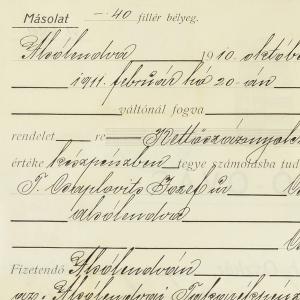 Másolat —·40 fillér bélyeg.
Alsólendva 1910. októbe
1911. február hó 20-án
váltónál fogva
rendelet re Kettőszáznyolc
értéke készpénzben tegye számolásba tud
T. Czaplovits József úr
alsólendva
Fizetendő Alsólendván
az: Alsólendvai Takarékpén